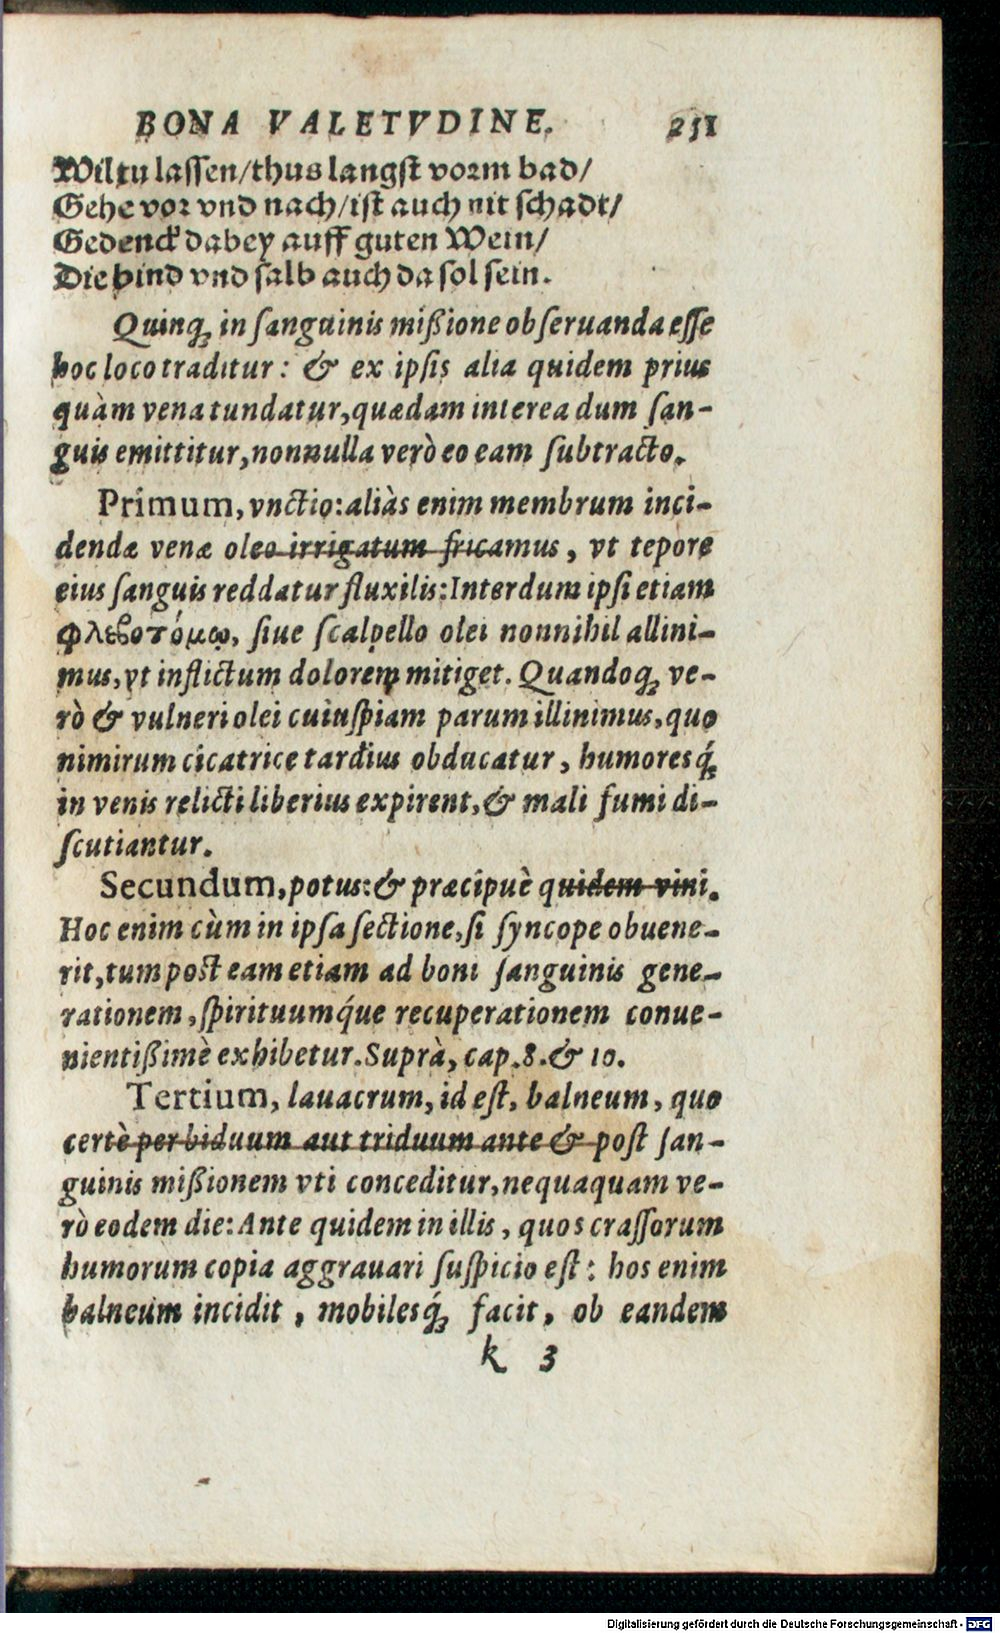 BONA VALETVDINE. 251
Wiltu lassen/thus langst vorm bad/
Gehe vor vnd nach/ist auch nit schadt/
Gedenck dabey auff guten Wein/
Die bind vnd salb auch da sol sein.
Quinq; in sanguinis mißione obseruanda esse
hoc loco traditur: & ex ipsis alia quidem prius
quàm vena tundatur, quædam interea dum san-
guis emittitur, nonnulla verò eo eam subtracto.
Primum, vnctio: aliàs enim membrum inci-
dendæ venæ oleo irrigatum fricamus, vt tepore
eius sanguis reddatur fluxilis: Interdum ipsi etiam
φλεβοτόμῳ, siue scalpello olei nonnihil allini-
mus, vt inflictum dolorem mitiget. Quandoq; ve-
rò & vulneri olei cuiuspiam parum illinimus, quo
nimirum cicatrice tardius obducatur, humoresq́;
in venis relicti liberius expirent, & mali fumi di-
scutiantur.
Secundum, potus: & præcipuè quidem vini.
Hoc enim cùm in ipsa sectione, si syncope obuene-
rit, tum post eam etiam ad boni sanguinis gene-
rationem, spirituumq́ue recuperationem conue-
nientißimè exhibetur. Suprà, cap. 8. & 10.
Tertium, lauacrum, id est, balneum, quo
certè per biduum aut triduum ante & post san-
guinis mißionem vti conceditur, nequaquam ve-
rò eodem die: Ante quidem in illis, quos crassorum
humorum copia aggrauari suspicio est: hos enim
balneum incidit, mobilesq́; facit, ob eandem
k 3
Digitalisierung gefördert durch die Deutsche Forschungsgemeinschaft - DFG